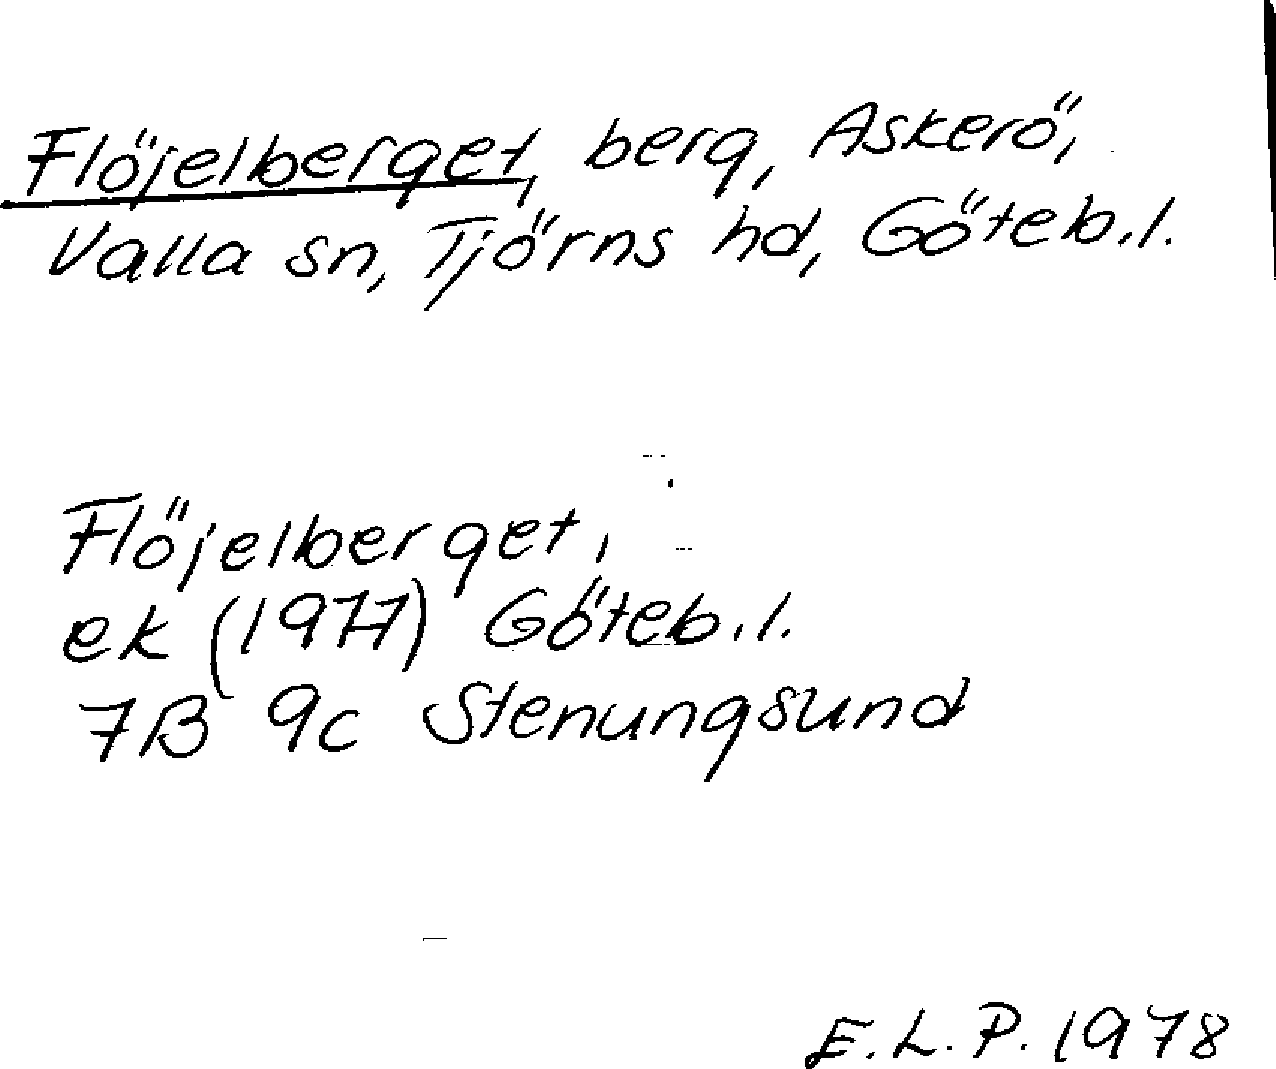 Flöjelberget, berg, Askerö,
Valla sn, Tjörns hd, Göteb.l.
Flöjelberget,
ek (1977) Göteb.l.
7B 9c Stenungsund
E.L.P. 1978